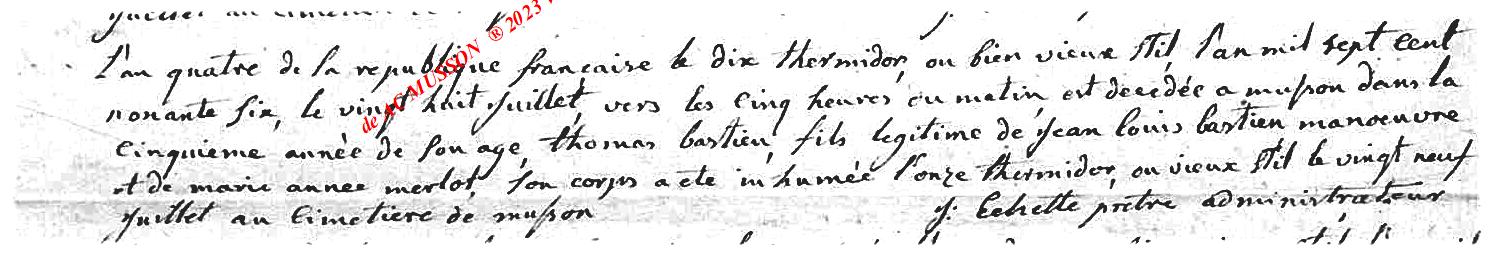 juillet au cimetiere de
L'an quatre de la republique française le dix thermidor, ou bien vieux stil, l'an mil sept cent
nonante six, le vingt huit juillet, vers les cinq heures du matin, est decedée a musson dans la
cinquieme année de son age, thomas bastien, fils legitime de jean louis bastien manoeuvre
et de marie annee merlot, son corps a ete inhumée l'onze thermidor, ou vieux stil le vingt neuf
juillet au cimetiere de musson
j. Echette prêtre administrateur
de MUSSON ® 2023